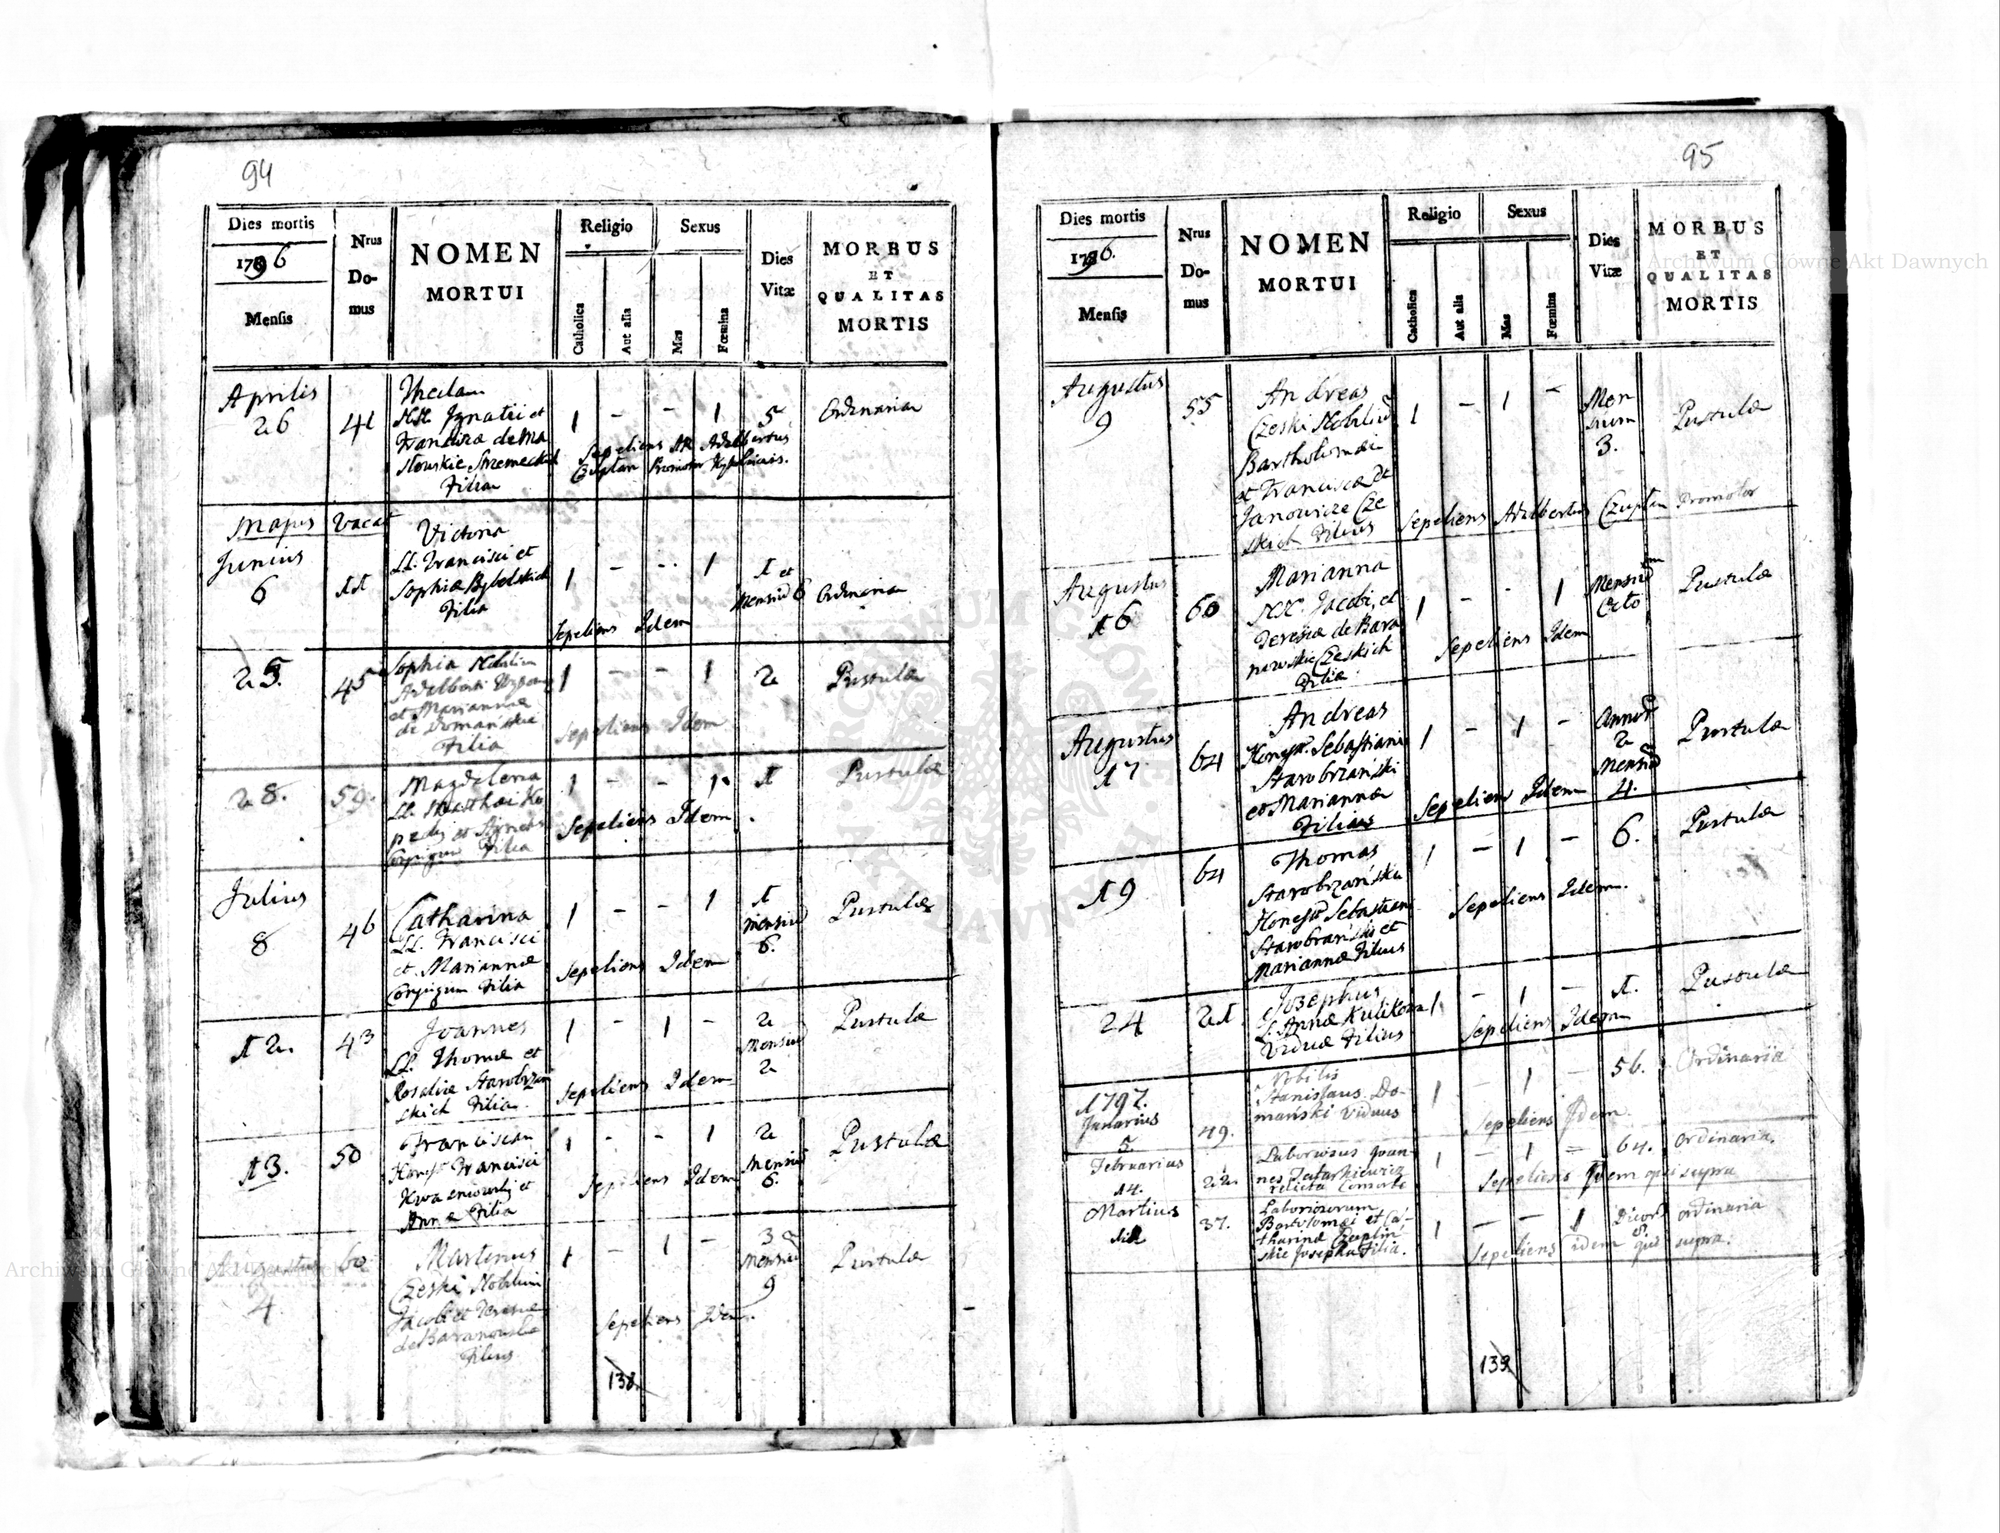 94
Dies mortis
1796
Mensis
Nrus
Do-
mus
NOMEN
MORTUI
Religio
Catholica
Aut alia
Sexus
Mas
Fœmina
Dies
Vitæ
MORBUS
ET
QUALITAS
MORTIS
Aprilis
26
41
Theclam
NN. Ignatii et
Franciscæ de Ma
słouskie Strzemeckich
Filiam
1 – – 1
5
Ordinaria
Sepeliens AR Adalbertus
Czuptan Promotor
Majus Vacat
Junius
6
11
Victoria
LL. Francisci et
Sophiæ
Filia
1 – – 1
1 et
Mensiũ 6
Ordinaria
Sepeliens Idem
25.
45
Sophia Nobilium
Adalberti
et Mariannæ
de Domańskie
Filia
1 – – 1
2
Pustulæ
Sepeliens Idem
28.
59.
Magdalena
LL. Matthæi Ko
et Agnetis
Conjugum Filia
1 – – 1
1
Pustulæ
Sepeliens Idem
Julius
8
46
Catharina
LL. Francisci
et Mariannæ
Conjugum Filia
1 – – 1
1
mensiũ
6.
Pustulæ
Sepeliens Idem
12.
43
Joannes
LL. Thomæ et
Rosaliæ Starobrzań
skich Filia.
1 – 1 –
2
Mensiũ
2
Pustulæ
Sepeliens Idem
13.
50
Franciscam
Honest. Francisci
et
Annæ Filia
1 – – 1
2
Mensiũ
6.
Pustulæ
Sepeliens Idem
Augustus
4
60
Martinus
Czeski Nobilium
Jacobi et Teresiæ
de Baranouskie
Filius
1 – 1 –
3
Mensiũ
9
Pustulæ
Sepeliens Idem.
138
95
Dies mortis
1796.
Mensis
Nrus
Do-
mus
NOMEN
MORTUI
Religio
Catholica
Aut alia
Sexus
Mas
Fœmina
Dies
Vitæ
MORBUS
ET
QUALITAS
MORTIS
Augustus
9
55
Andreas
Czeski Nobiliũ
Bartholomæi
et Franciscæ de
Janowicze Cze
skich Filius
1 – 1 –
Men
sium
3.
Pustulæ
Sepeliens Adalbertus Czuptan Promotor
Augustus
16
60
Marianna
NN. Jacobi, et
Teresiæ de Bara
nowskie Czeskich
Filia
1 – – 1
Mensium
Octo
Pustulæ
Sepeliens Idem
Augustus
17
64
Andreas
Honest. Sebastiani
Starobrzański
et Mariannæ
Filius
1 – 1 –
Annor
2
Mensiũ
4.
Pustulæ
Sepeliens Idem
19
64
Thomas
Starobrzański
Honest Sebastiani
Starobrański et
Mariannæ Filius
1 – 1 –
6.
Pustulæ
Sepeliens Idem.
24
21
Josephus
L. Annæ Kulikowa
Viduæ Filius
1 – 1 –
1.
Pustulæ
Sepeliens Idem
1797.
Januarius
5.
49.
Nobilis
Stanislaus Do-
mański Viduus
1 – 1 –
56.
Ordinaria
Sepeliens Idem
Februarius
14.
22.
Laboriosus Joan-
nes Tatarkiewicz
relicta Consorte
1 – 1 –
64.
Ordinaria.
Sepeliens Idem qui supra
Martius
37.
Laboriosorum
Bartolomæi et Ca-
tharinæ Czaplin
skie Josepha Filia.
1 – – 1
ordinaria
Sepeliens idem qui supra.
139
Archiwum Główne Akt Dawnych
Archiwum Główne Akt Dawnych
ARCHIWUM GŁÓWNE AKT DAWNYCH